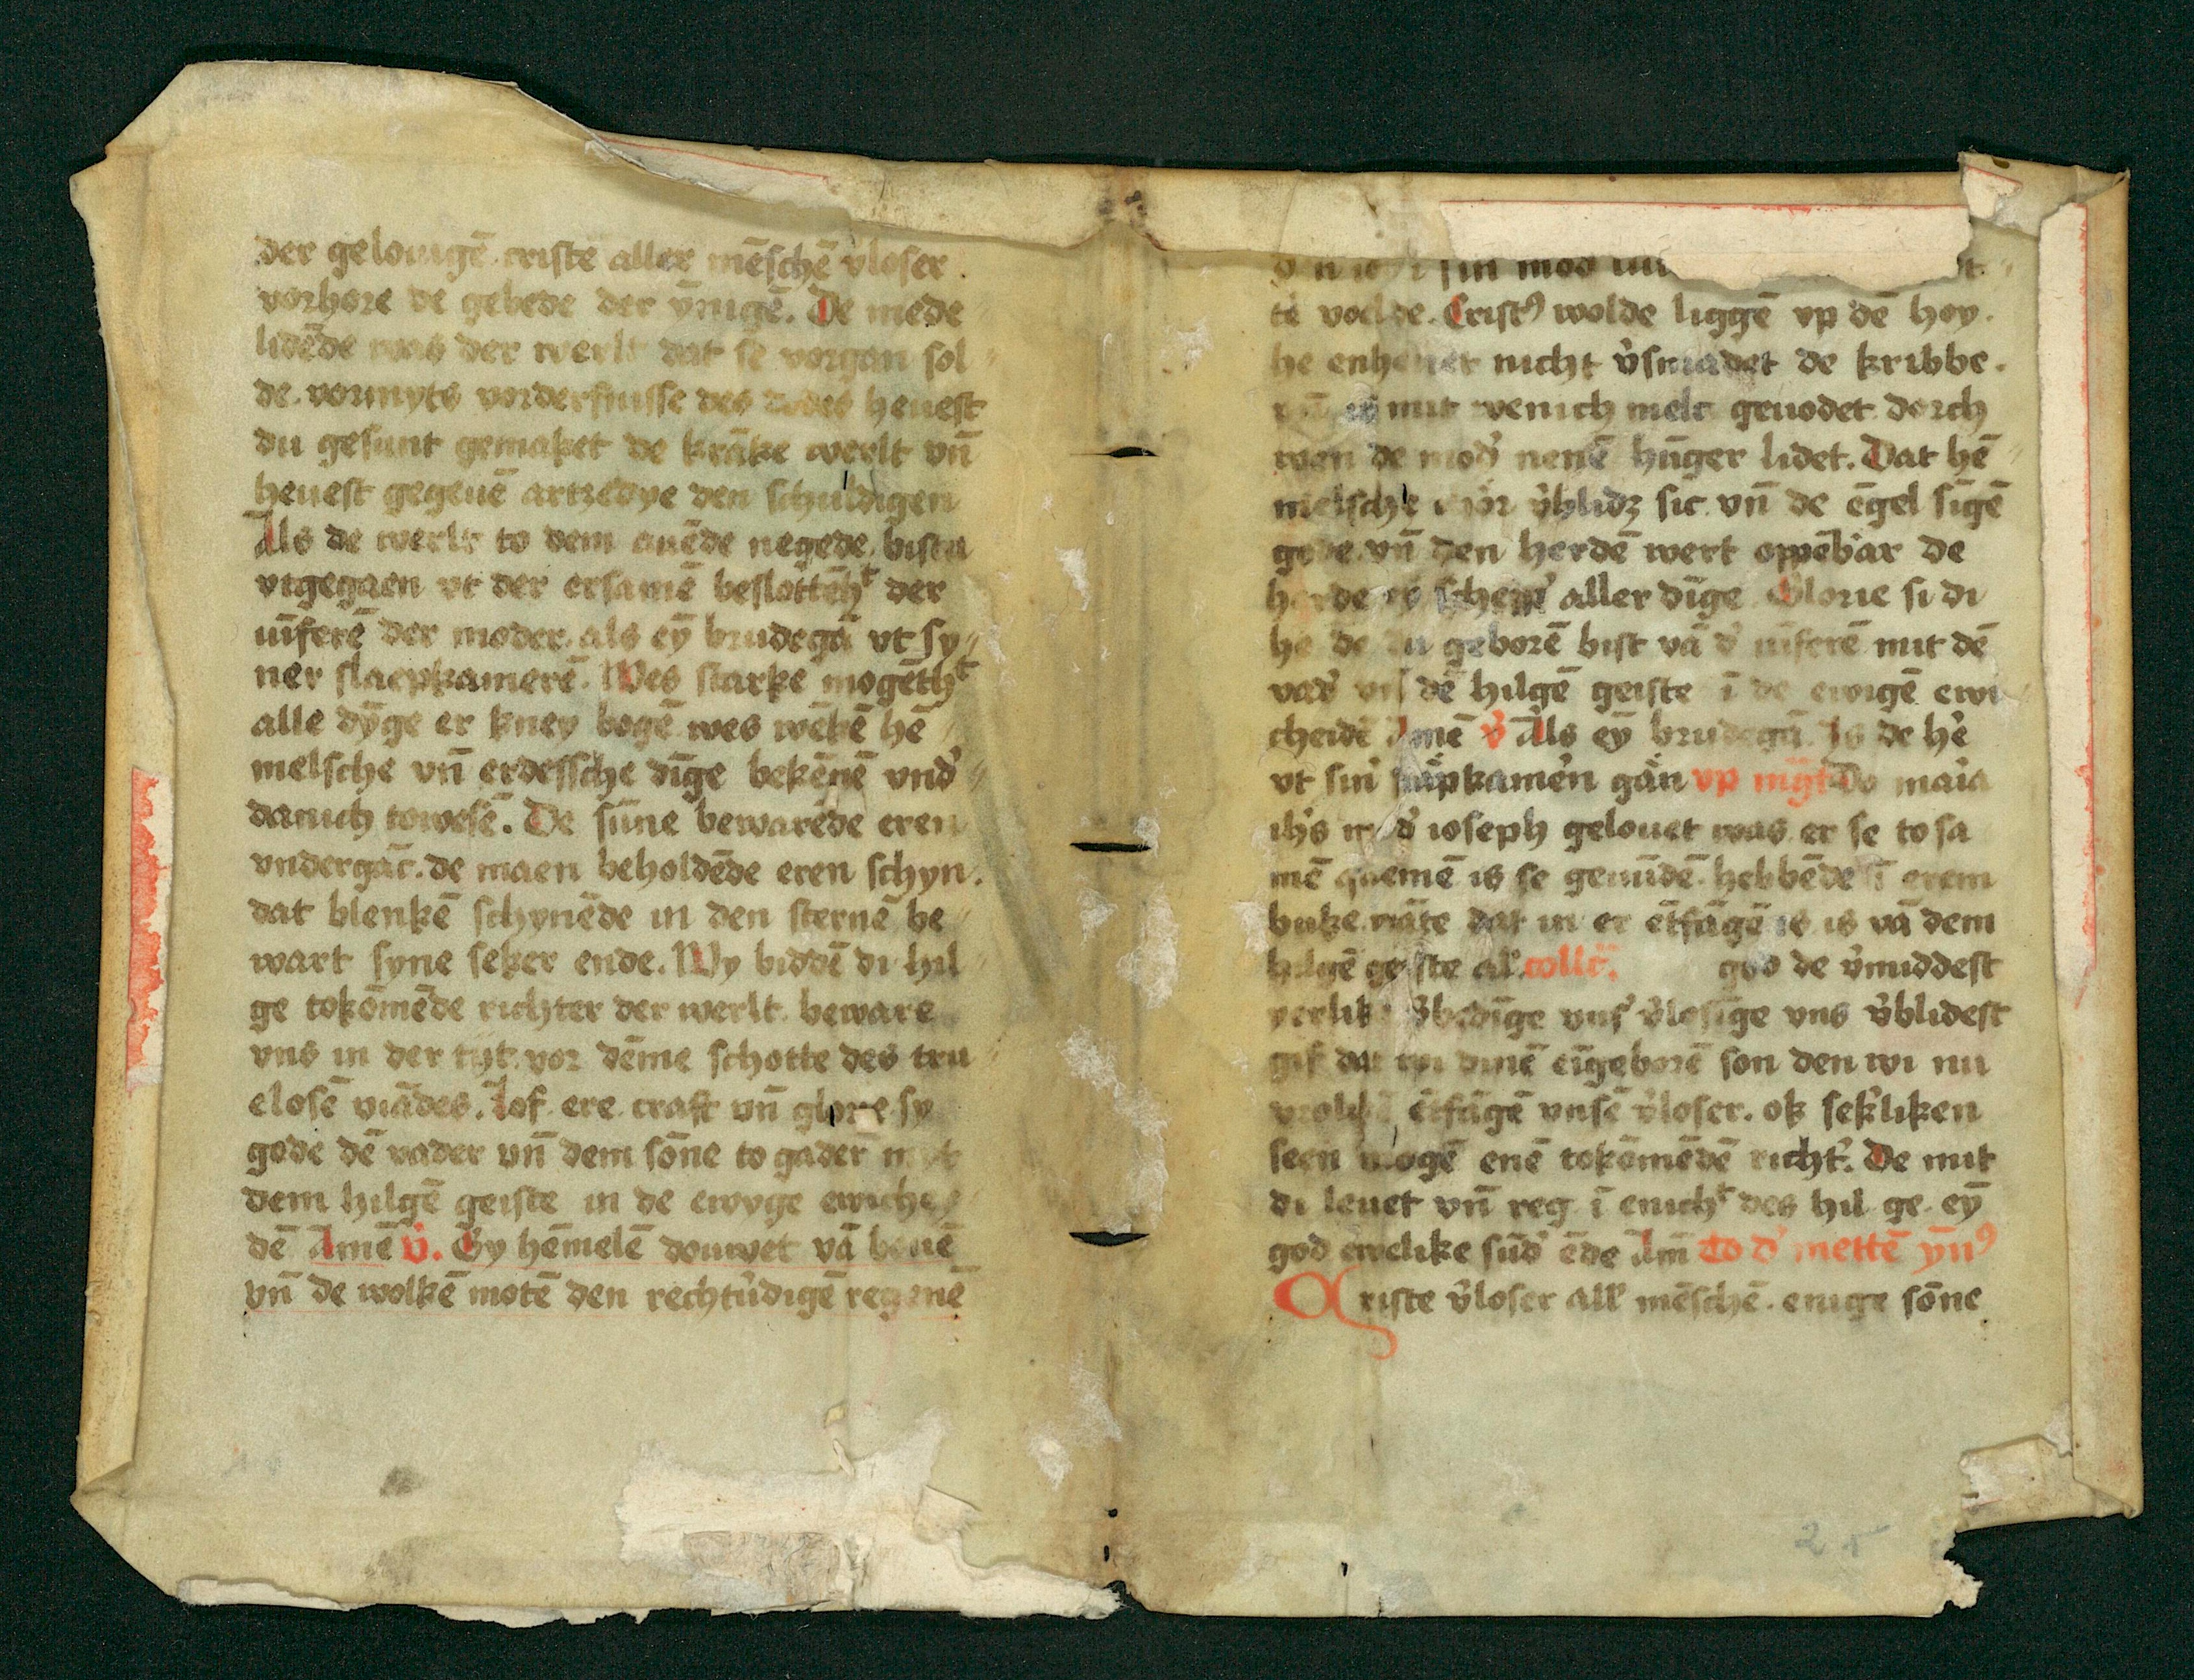 der gelouigē criste aller mēschē v̾loser.
vorhore de gebede der v̄nigē. De mede
lidēde was der werlt dat se vorgan sol
de. vormyts vorderfnisse des dodes heuest
du gesunt gemaket de krāke werlt vn̄
heuest gegeuē artzedye den schuldigen
Als de werlt to dem auēde negede. bistu
vtgegaen vt der ersamē beslottēhᵗ der
iūferē der moder. als eȳ brudegā vt sy
ner slaepkamerē. Wes starke mogēthᵗ
alle dȳge er kney bogē wes wēkē hē
melsche vn̄ erdessche dīge bekēnē vnd̾
danich towesē. De sūne bewarēde eren
vndergāc. de maen beholdēde eren schyn.
dat blenkē schynēde in den sternē be
wart syne seker ende. Wy biddē di hil
ge tokōmēde richter der werlt. beware
vns in der tijt. vor dēme schotte des tru
elosē viādes. Lof. ere. craft vn̄ glorie sy
gode dē vader vn̄ dem sōne to gader̄ myt
dem hilgē geiste in de ewyge ewiche
dē Amē v̾. Gy hēmelē douwet vā bouē
vn̄ de wolkē motē den rechtu̾digē regenē
sin mod
te voelde. Cristꝰ wolde liggē vp dē hoy.
he enheuet nicht v̾smadet de kribbe.
vn̄ is mit wenich melc geuodet dorch
wen de mod̾ nenē hūger lidet. Dat hē
melsche chor v̾blidꝫ sic. vn̄ de ēgel sīgē
gode. vn̄ den herdē wert oppēbar de
herde schepp̾ aller dīge. Glorie si di
he de du geborē bist vā d̾ iūferē mit dē
vad̾ vn̄ dē hilgē geiste ī de ewigē ewi
cheidē Amē v̾ Als eȳ brudegā. Is de he̾
vt sin̾ slapkame̾n gan vp mgt Do mar̾ia
ih̾s mod̾ ioseph gelouet was. er se to sa
mē quemē is se geuūdē. hebbēde ī erem
buke. wāte dat in er ētfāgē is is vā dem
hilgē geiste al̾. collc̄. god de v̾middest
yerlike v̾bedīge vns̾ v̾losīge vns v̾blidest
gif dat wi dinē eīgeborē son den wi nu
vrolikē ētfāgē vnsē v̾loser. ok sek̾liken
seen mogē enē tokōmēdē richt̾. De mit
di leuet vn̄ reg ī enichᵗ des hil ge eȳ
god ewelike sūd̾ ēde Am̄ To d̾ mettē ȳnꝰ
Criste v̾loser all̾ mēschē. enige sōne
25